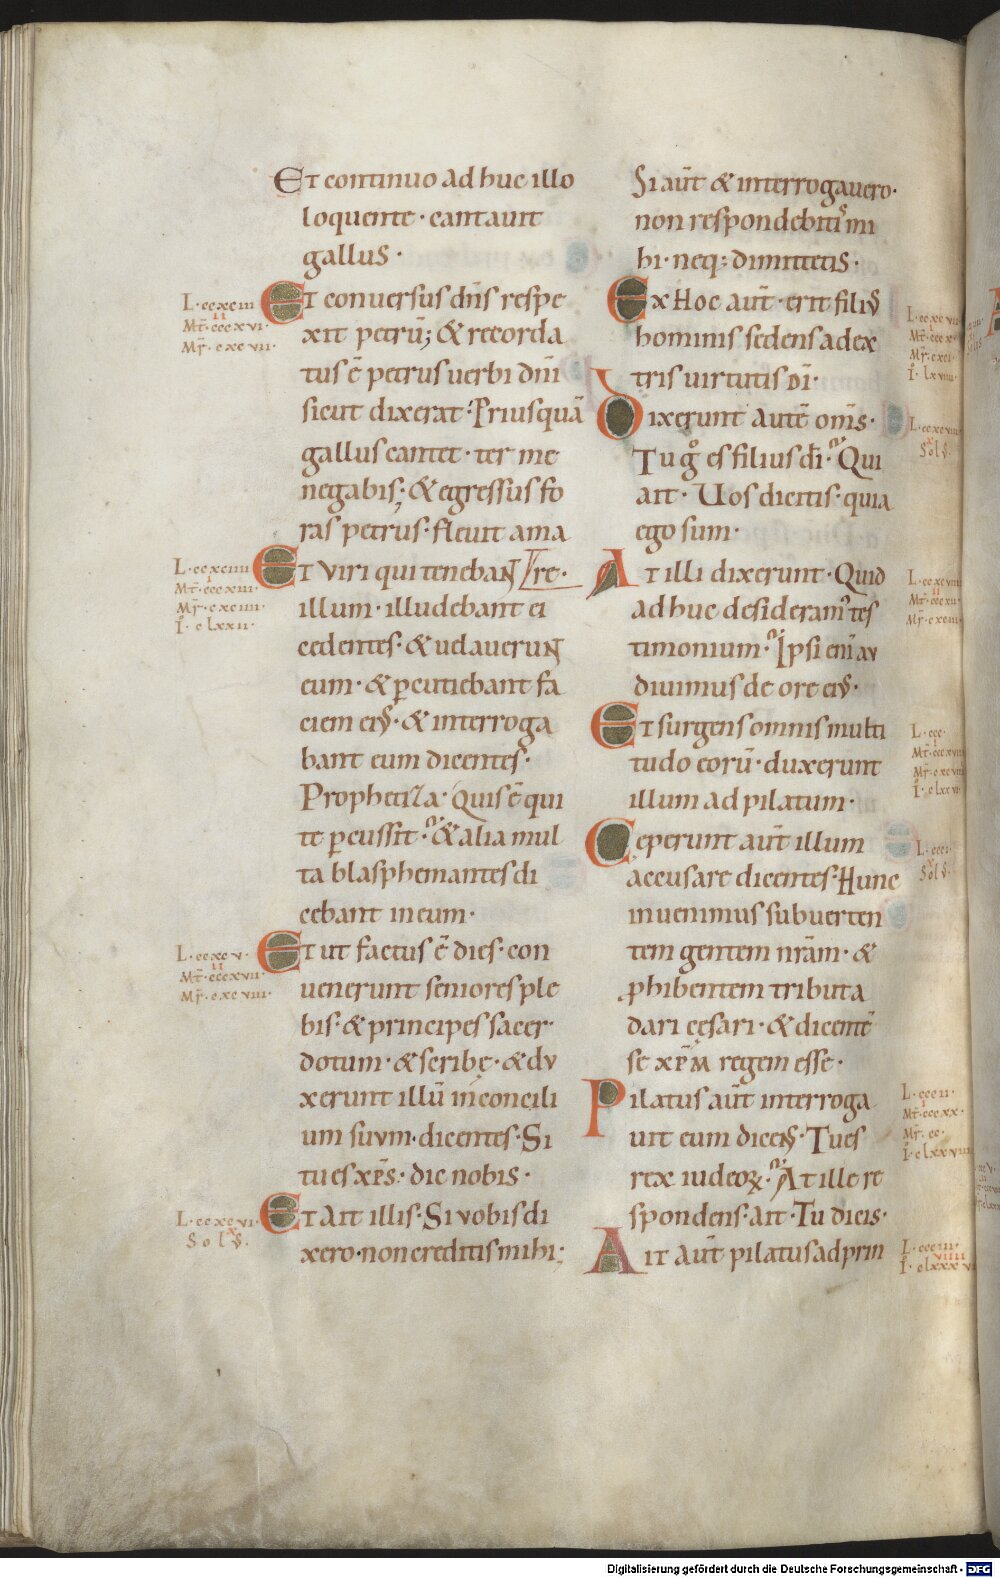 Et continuo adhuc illo
loquente · cantauit
gallus ·
L · ccxciii
Mt̄ · cccxvi ·
Mr̄ · cxcvii ·
Et conuersus dn̄s respe
xit petrū; & recorda
tus ē petrus uerbi dn̄i
sicut dixerat · Priusquā
gallus cantet · ter me
negabis; & egressus fo
ras petrus · fleuit ama
re ·
L · ccxciiii
Mt̄ · cccxiii ·
Mr̄ · cxciiii ·
I · clxxii ·
Et viri qui tenebant
illum · illudebant ei
cedentes · & uelauerunt
eum · & ꝑcutiebant fa
ciem eiꝰ · & interroga
bant eum dicentes ·
Prophetiza · Quis ē qui
te ꝑcussit · & alia mul
ta blasphemantes di
cebant in eum ·
L · ccxcv ·
Mt̄ · cccxvii ·
Mr̄ · cxcviii ·
Et ut factus ē dies · con
uenerunt seniores ple
bis · & principes sacer
dotum · & scribę · & du
xerunt illū in concili
um suum · dicentes · Si
tu es xp̄s · dic nobis ·
L · ccxcvi ·
Solꝰ ·
Et ait illis · Si vobis di
xero · non creditis mihi;
Si aūt & interrogauero ·
non respondebitis mi
hi · neq; dimittetis ·
Ex Hoc aūt · erit filiꝰ
hominis sedens a dex
tris uirtutis dī ·
L · ccxcvii
Dixerunt autē om̄s ·
Tu gͦ es filius dī · Qui
ait · Uos dicitis · quia
ego sum ·
Solꝰ ·
At illi dixerunt · Quid
adhuc desideramꝰ tes
timonium · Ipsi eni᷎ au
diuimus de ore eiꝰ ·
Et surgens omnis multi
tudo eorū · duxerunt
illum ad pilatum ·
L · ccc ·
Ceperunt aūt illum
accusare dicentes · Hunc
inuenimus subuerten
tem gentem nr̄am · &
ꝓhibentem tributa
dari cęsari · & dicentē
se xp̄m regem esse ·
L · ccci ·
Solꝰ ·
Pilatus aūt interroga
uit eum dicens · Tu es
rex iudeoꝝ · At ille re
spondens · ait · Tu dicis ·
L · cccii ·
Mt̄ · cccxx ·
Mr̄ · cc ·
I · clxxviii
Ait aūt pilatus ad prin
L · ccciii ·
I · clxxxvi
Digitalisierung gefördert durch die Deutsche Forschungsgemeinschaft - DFG